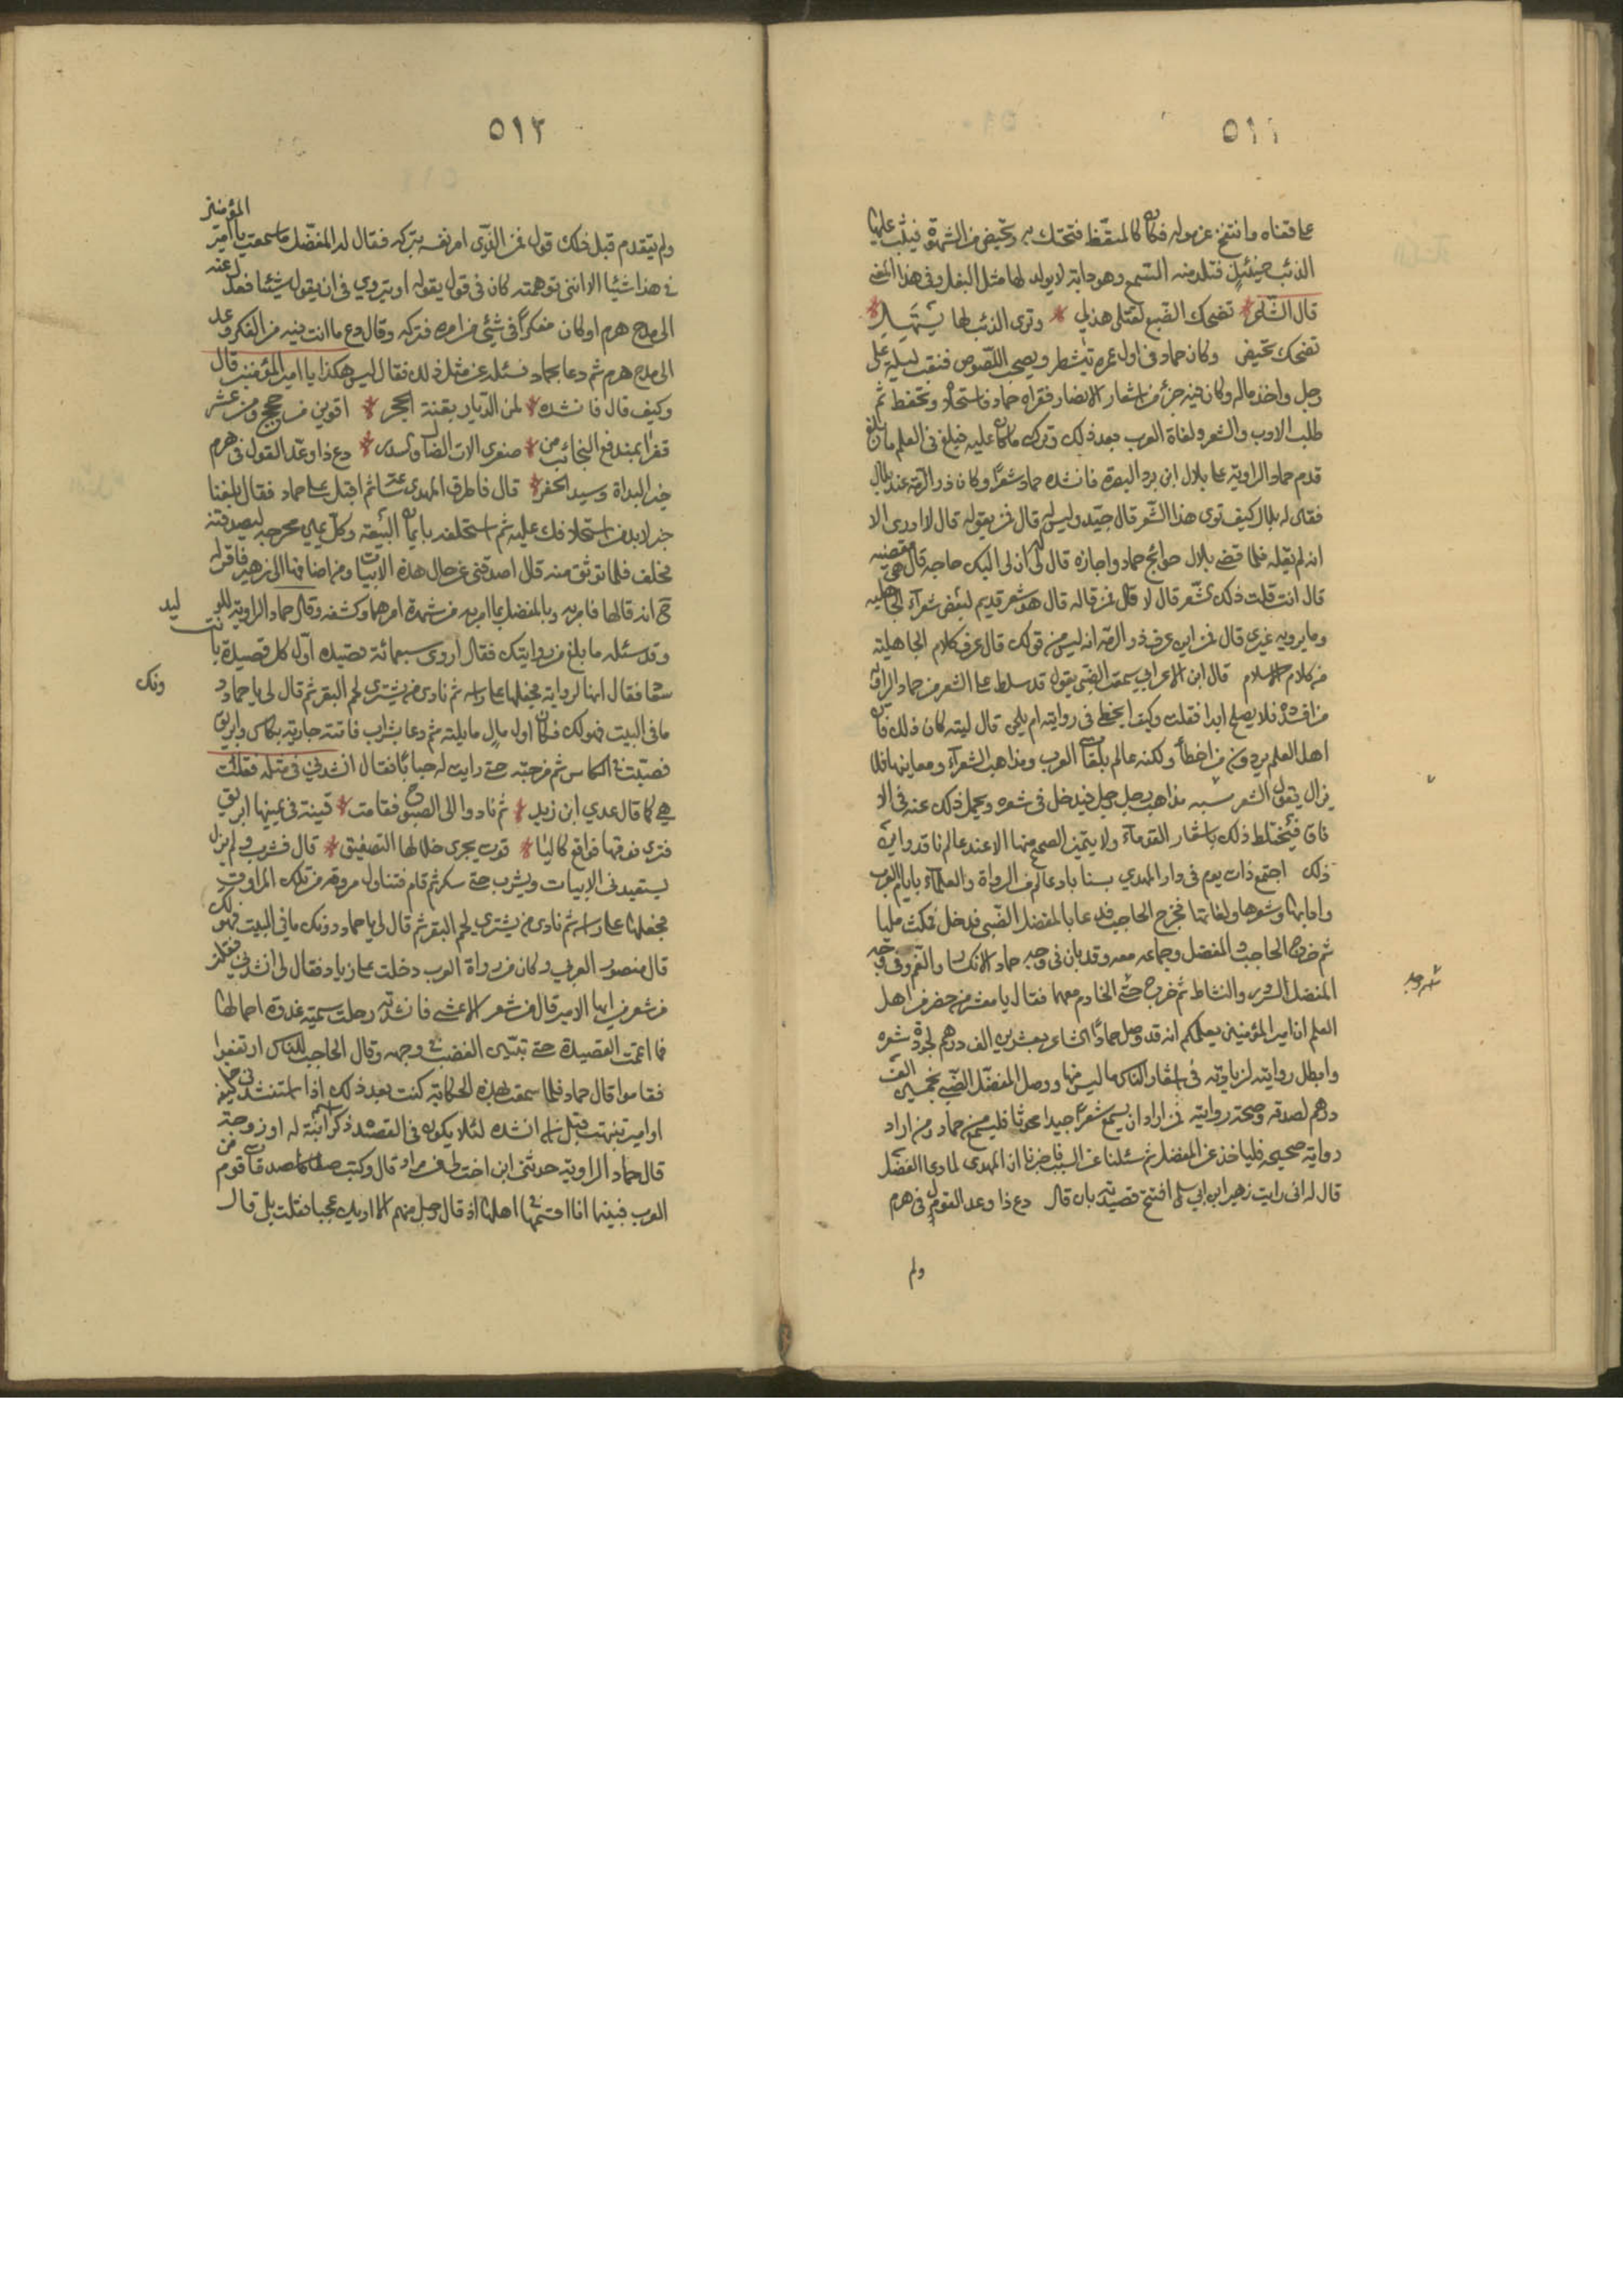 ٥١١
على قفاه وانتفخ غرموله فكان كالمنقظ فتحتك به وتحيض من الشهوة فيثب عليها
الذئب حينئيذ فتلد منه السمع وهو دابة لا يولد لها مثل البغل وفى هذا المعنى
قال الشاعر تضحك الضبع لقتلى هذيل وترى الذئب لها يستهل
تضحك تحيض وكان حماد فى اول عمره يتشطر ويصحب اللصوص فنقب ليلة على
رجل واخذ ماله وكان فيه جزء من اشعار الانصار فقراه حماد فاستحلاه وتحفظه ثم
طلب الادب والشعر ولغاة العرب بعد ذلك وترك ما كان عليه فبلغ فى العلم ما بلغ
قدم حماد الراوية على بلال ابن برد البصرة فانشده حماد شعرًا وكان ذو الرمة عند بلال
فقال له بلال كيف ترى هذا الشعر قال جيد وليس له قال فمن يقوله قال لا ادرى الا
انه لم يقله فلما قضى بلال حوائج حماد واجازه قال له ان لى اليك حاجة قال هى مقضية
قال انت قلت ذلك الشعر قال لا قال فمن قاله قال هو شعر قديم لبعض شعرآء الجاهلية
وما يرويه غيرى قال فمن اين عرف ذو الرمة انه ليس من قولك قال عرف كلام الجاهلية
من كلام الاسلام قال ابن الاعرابى سمعت الضبى يقول قد سلط على الشعر من حماد الراوية
ما افسده فلا يصلح ابدا فقلت وكيف ايخطى فى روايته ام يلحن قال ليته كان ذلك فان
اهل العلم يردون من اخطأ ولكنه عالم بلغات العرب ومذاهب الشعرآء ومعانيها فلا
يزال يقول الشعر يشبه مذاهب رجل رجل فيدخل فى شعره ويحمل ذلك عنه فى الا
فاق فيختلط ذلك باشعار القدمآء ولا يتميز الصحيح منها الا عند عالم ناقد واين
ذلك اجتمع ذات يوم فى دار المهدي بسنا باد عالم من الرواة والعلمآء بايام العرب
وادابها وشعرها ولغاتها فخرج الحاجب فدعا بالمفضل الضبى فدخل فمكث مليا
ثم خرج الحاجب والمفضل وجماعه معه وقد بان فى وجه حماد الانكسار والغم وفى وجه
المفضل السرور والنشاط ثم خرج حسن الخادم معهما فقال يا معشر من حضر من اهل
العلم ان امير المؤمنين يعلمكم انه قد وصل حمادًا الشاعر بعشرين الف درهم لجودة شعره
وابطل روايته لزيادته فى اشعار الناس ما ليس منها ووصل المفضل الضبى بخمسين الف
درهم لصدقه وصحة روايته فمن اراد ان يسمع شعرًا جيدا محدثا فليسمع من حماد ومن اراد
رواية صحيحه فلياخذ عن المفضل ثم سئلنا عن السبب فاخبرنا ان المهدى لما دعا المفضل
قال له انى رايت زهير ابن ابى سلمى افتتح قصيدته بان قال دع ذا وعد القول فى هرم
ولم
٥١٢
ولم يتقدم قبل ذلك قول فمن الذى امر نفسه بتركه فقال له المفضل ما سمعت يا امير المؤمنين
فى هذا شيئا الا اننى توهمته كان فى قول يقوله او يتروي فى ان يقول شيئا فعدل عنه
الى مدح هرم او كان مفكرًا فى شيئى من امره فتركه وقال دع ما انت فيه من الفكر وعد
الى مدح هرم ثم دعا بحماد فسئله عن مثل ذلك فقال ليس هكذا يا امير المؤمنين قال
وكيف قال فانشده لمن الديار بقنة الحجر اقوين من حجج ومن عشر
قفرا بمندفع النجائب من صفرى الات الضال والسدر دع ذا وعد القول فى هرم
خير البداة وسيد الحضر قال فاطرق المهدى ساعة ثم اقبل على حماد فقال بلغنا
خبر لا بد من استحلافك عليه ثم استحلفه بايمان البيعة وكل يمين محرجه ليصدقنه
فحلف فلما توثق منه قال اصدقنى عن حال هذه الابيات ومن اضافها الى زهير فاقر له
ح انه قالها فامر به وبالمفضل بما امر به من شهرة امرهما وكشفه وقال حماد الراوية للوليد
وقد سئله ما بلغ من روايتك فقال اروى سبعمائة قصيده اول كل قصيدة بانت
سعاد فقال انها لرواية فجعلها على راسه ثم نادى من يشترى لحم البقر ثم قال لى يا حماد دونك
ما فى البيت فهو لك فكان اول مال ما يلته ثم دعا بشراب فاتته جارية بكاس وابريق
فصبت فى الكاس ثم مزجته حتى رايت له حبابًا فقال انشدنى فى مثله فقلت
هى كما قال عدي ابن زيد ثم نادوا الى الصبوح فقامت قينة فى يمينها ابريق
فترى فوقها فواقع كاليا قوت يجرى خلالها التصفيق قال فشرب ولم يزل
يستعيدنى الابيات ويشرب حتى سكر ثم قام فتناول مروقه من تلك المراوق
فجعلها على راسه ثم نادى من يشترى لحم البقر ثم قال لى يا حماد دونك ما فى البيت فهو لك
قال منصور العربى وكان من رواة العرب دخلت على زياد فقال لى انشدنى فقلت
من شعر من ايها الامير قال من شعر الاعشى فانشدته رحلت سمية غدوة اجمالها
فما اتممت القصيدة حتى تبينت الغضب فى وجهه وقال الحاجب للناس ارتفعوا
فقاموا قال حماد فلما سمعت هذه الحكاية كنت بعد ذلك اذا استنشدنى خليفة
او امير تنبهت قبل ان انشده لئلا يكون فى القصيد ذكر ابنة له او زوجة
قال حماد الراوية حدثنى ابن اخت من مراد قال وكيت صدقات قوم من
العرب فبينا انا اقسمها فى اهلها اذ قال رجل منهم الا اريك عجبا فقلت بلى قال